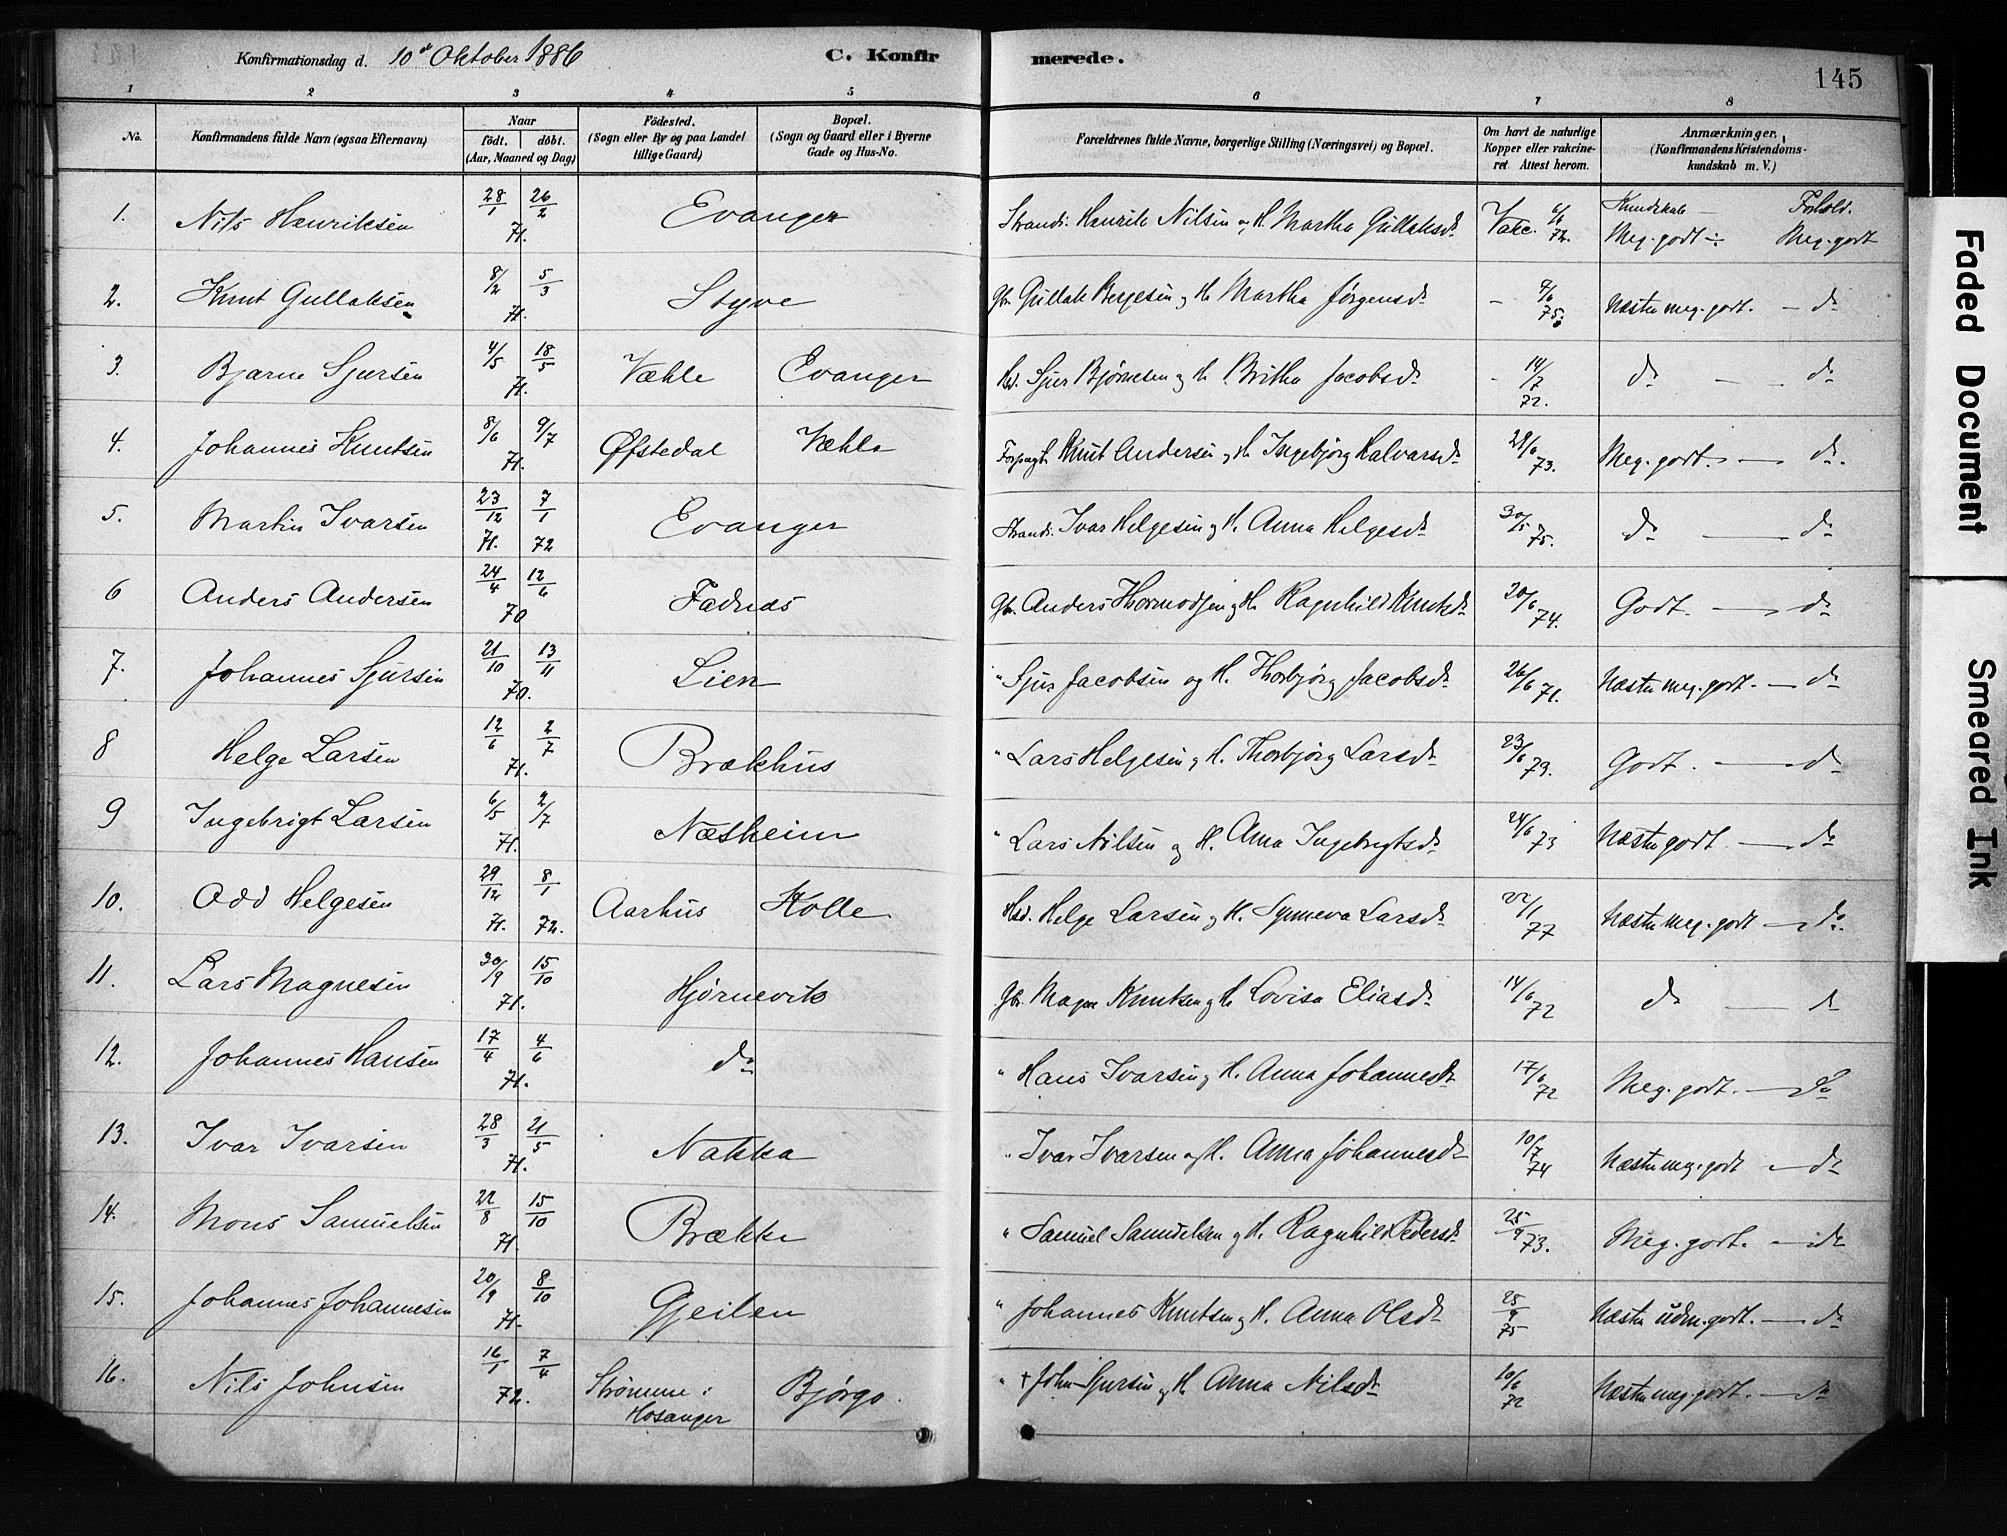 Konfirmationsdag d. 10de Oktober 1886 C. Konfirmerede. 145
1 2 3 4 5 6 7 8
No. Konfirmandens fulde Navn (ogsaa Efternavn) Naar født. døbt. (Aar, Maaned og Dag) Fødested. (Sogn eller By og paa Landet tillige Gaard) Bopæl. (Sogn og Gaard eller i Byerne Gade og Hus-No. Forældrenes fulde Navne, borgerlige Stilling (Næringsvei) og Bopæl. Om havt de naturlige Kopper eller vakcineret. Attest herom. Anmærkninger, (Konfirmandens Kristendomskundskab m. V.)
Kundskab — Forhold.
1. Nils Henriksen 28/1 26/2 71. Evanger Strands. Henrik Nilsen og H. Martha Gullaksdr Vakc. 6/6 72. Meg. godt ÷ Meg. godt
2. Knut Gullaksen 8/2 5/3 71. Styve Gbr. Gullak Bergesen og H. Martha Jørgensdr - 7/6 75. Næsten meg. godt. — do
3. Bjarne Sjursen 4/5 18/5 71. Væhle Evanger Hsd. Sjur Bjørnesen og H. Britha Jacobsdr - 14/7 72. do — do
4. Johannes Knutsen 8/6 9/7 71. Øfstedal Væhle Forpagt. Knut Andersen og H. Ingebjørg Halvarsdr 21/6 73. Meg. godt. — do.
5. Martin Ivarsen 23/12 71. 7/1 72 Evanger Strands. Ivar Helgesen og H. Anna Helgesdr 30/5 75. do — do
6 Anders Andersen 24/4 12/6 70 Fadnæs Gbr. Anders Hermodsen og H. Ragnhild Knutsdr 20/6 74. Godt — do
7. Johannes Sjursen 21/10 13/11 70. Lien " Sjur Jacobsen og H. Thorbjørg Jacobsdr 26/6 71. Næsten meg. godt. — do
8 Helge Larsen 12/6 2/7 71. Brækhus " Lars Helgesen og H. Thorbjørg Larsdr 23/6 79. Godt. — do
9 Ingebrigt Larsen 6/5 2/7 71. Næsheim " Lars Nilsen og H. Anna Ingebrigtsdr 24/6 73 Næsten godt. — do
10. Odd Helgesen 29/12 71. 8/1 72. Aarhus Holle. Hsd. Helge Larsen og H. Synneva Larsdr 22/1 77 Næsten meg. godt — do.
11. Lars Magnesen 30/9 15/10 71. Hjørnevik Gbr. Magne Knutsen og H. Lovisa Eliasdr 14/6 72 do — do
12. Johannes Hansen 17/4 4/6 71. do " Hans Ivarsen og H. Anna Johannesdr 17/6 72 Meg. godt. — do
13. Ivar Ivarsen 28/3 21/5 71. Nakka " Ivar Ivarsen og H. Anna Johannesdr 10/7 74 Næsten meg. godt — do
14. Mons Samuelsen 22/8 15/10 71. Brække " Samuel Samuelsen og H. Ragnhild Pedersdr 25/9 73. Meg. godt. — do
15. Johannes Johannesen 20/9 8/10 71. Gjeilen " Johannes Knutsen og H. Anna Olsdr 25/9 75 Næsten udm. godt. — do
16. Nils Johnsen 16/1 7/4 72. Strømme i Hosanger Bjørgo. " † John Sjursen og H. Anna Nilsdr 10/6 72 Næsten meg. godt. — do
Faded Document
Smeared Ink